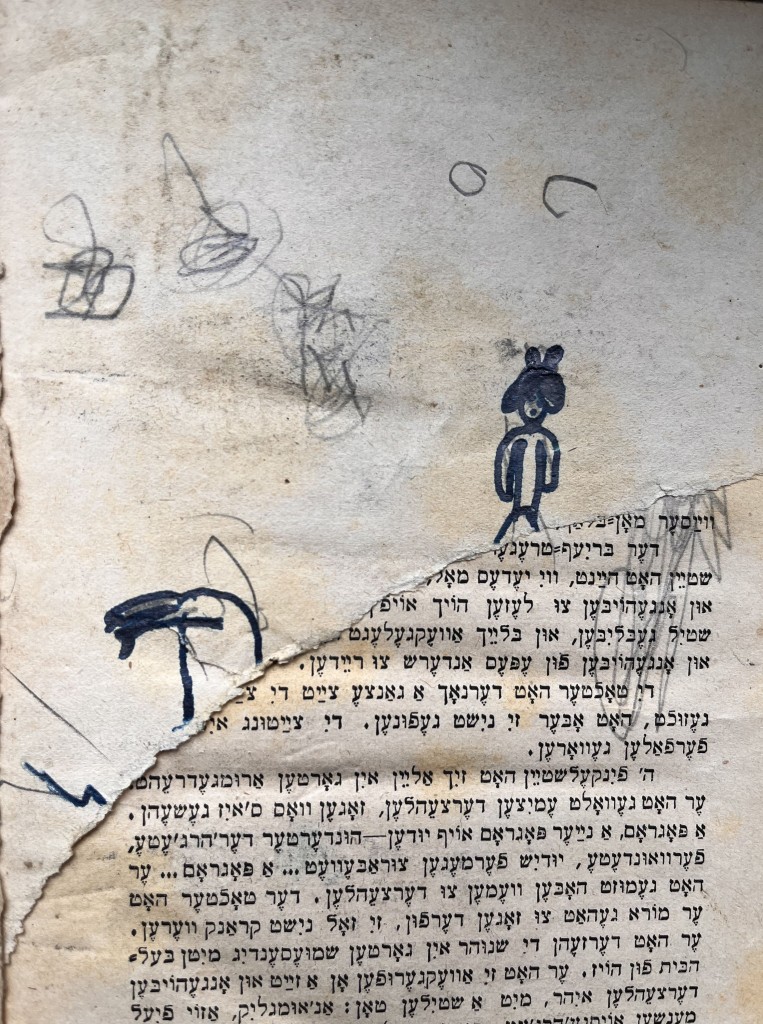 ווַיסער מאָן־
דער בריִעף־טרעגע
שטיין האָט היַינט, ווי יעדעס מאָל,
און אָנגעהויבען צו לעזען הויך אויפן
שטיל געבליבען, און בלייך אַוועקגעלעגט
און אָנגעהויבען פון עפּעס אַנדערש צו ריידען.
די טאָכטער האָט דערנאָך אַ גאַנצע צייט די
געזוכט, האָט אָבער זי נישט געפונען. די צייטונג אי
פערפאַלען געוואָרען.
ה' פינקעלשטיין האָט זיך אַליין אין גאָרטען אַרומגעדרעהט.
ער האָט געוואָלט עמיצען דערצעהלען, זאָגען וואָס ס'איז געשעהן.
אַ פּאָגראָם, אַ נייער פּאָגראָם אויף יודען—הונדערטער דער'הרג'עטע,
פערוואונדעטע, יודיש פערמעגען צוראַבעוועט... אַ פּאָגראָם... ער
האָט געמוזט האָבען וועמען צו דערצעהלען. דער טאָכטער האָט
ער מורא געהאַט צו זאָגען דערפון, זי זאָל נישט קראַנק ווערען.
ער האָט דערזעהן די שנוהר אין גאָרטען שמועסענדיג מיטן בעל־
הבית פון הויז. ער האָט זי אַוועקגערופען אָן אַ זייט און אָנגעהויבען
דערצעהלען איהר, מיט אַ שטילען טאָן: אַנ'אומגליק, אַזוי פיעל
מענשען